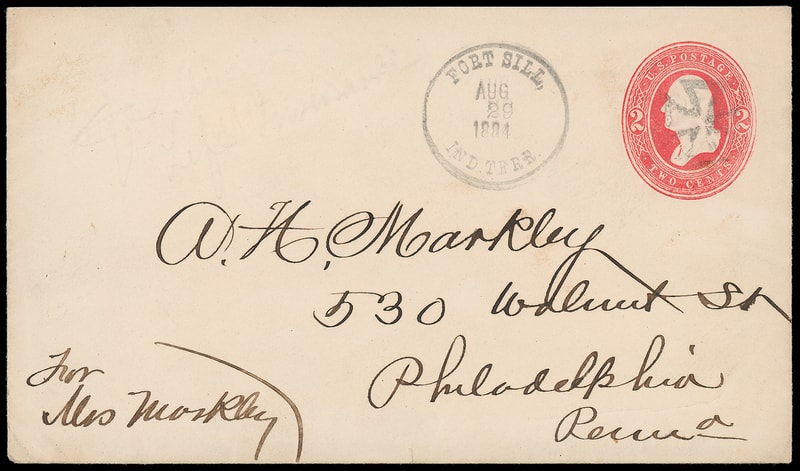 FORT SILL,
AUG
29
1884
IND. TERR.
U.S. POSTAGE
2 2
TWO CENTS
A. H. Markley
530 Walnut St
Philadelphia
Penna
For
Mrs Markley